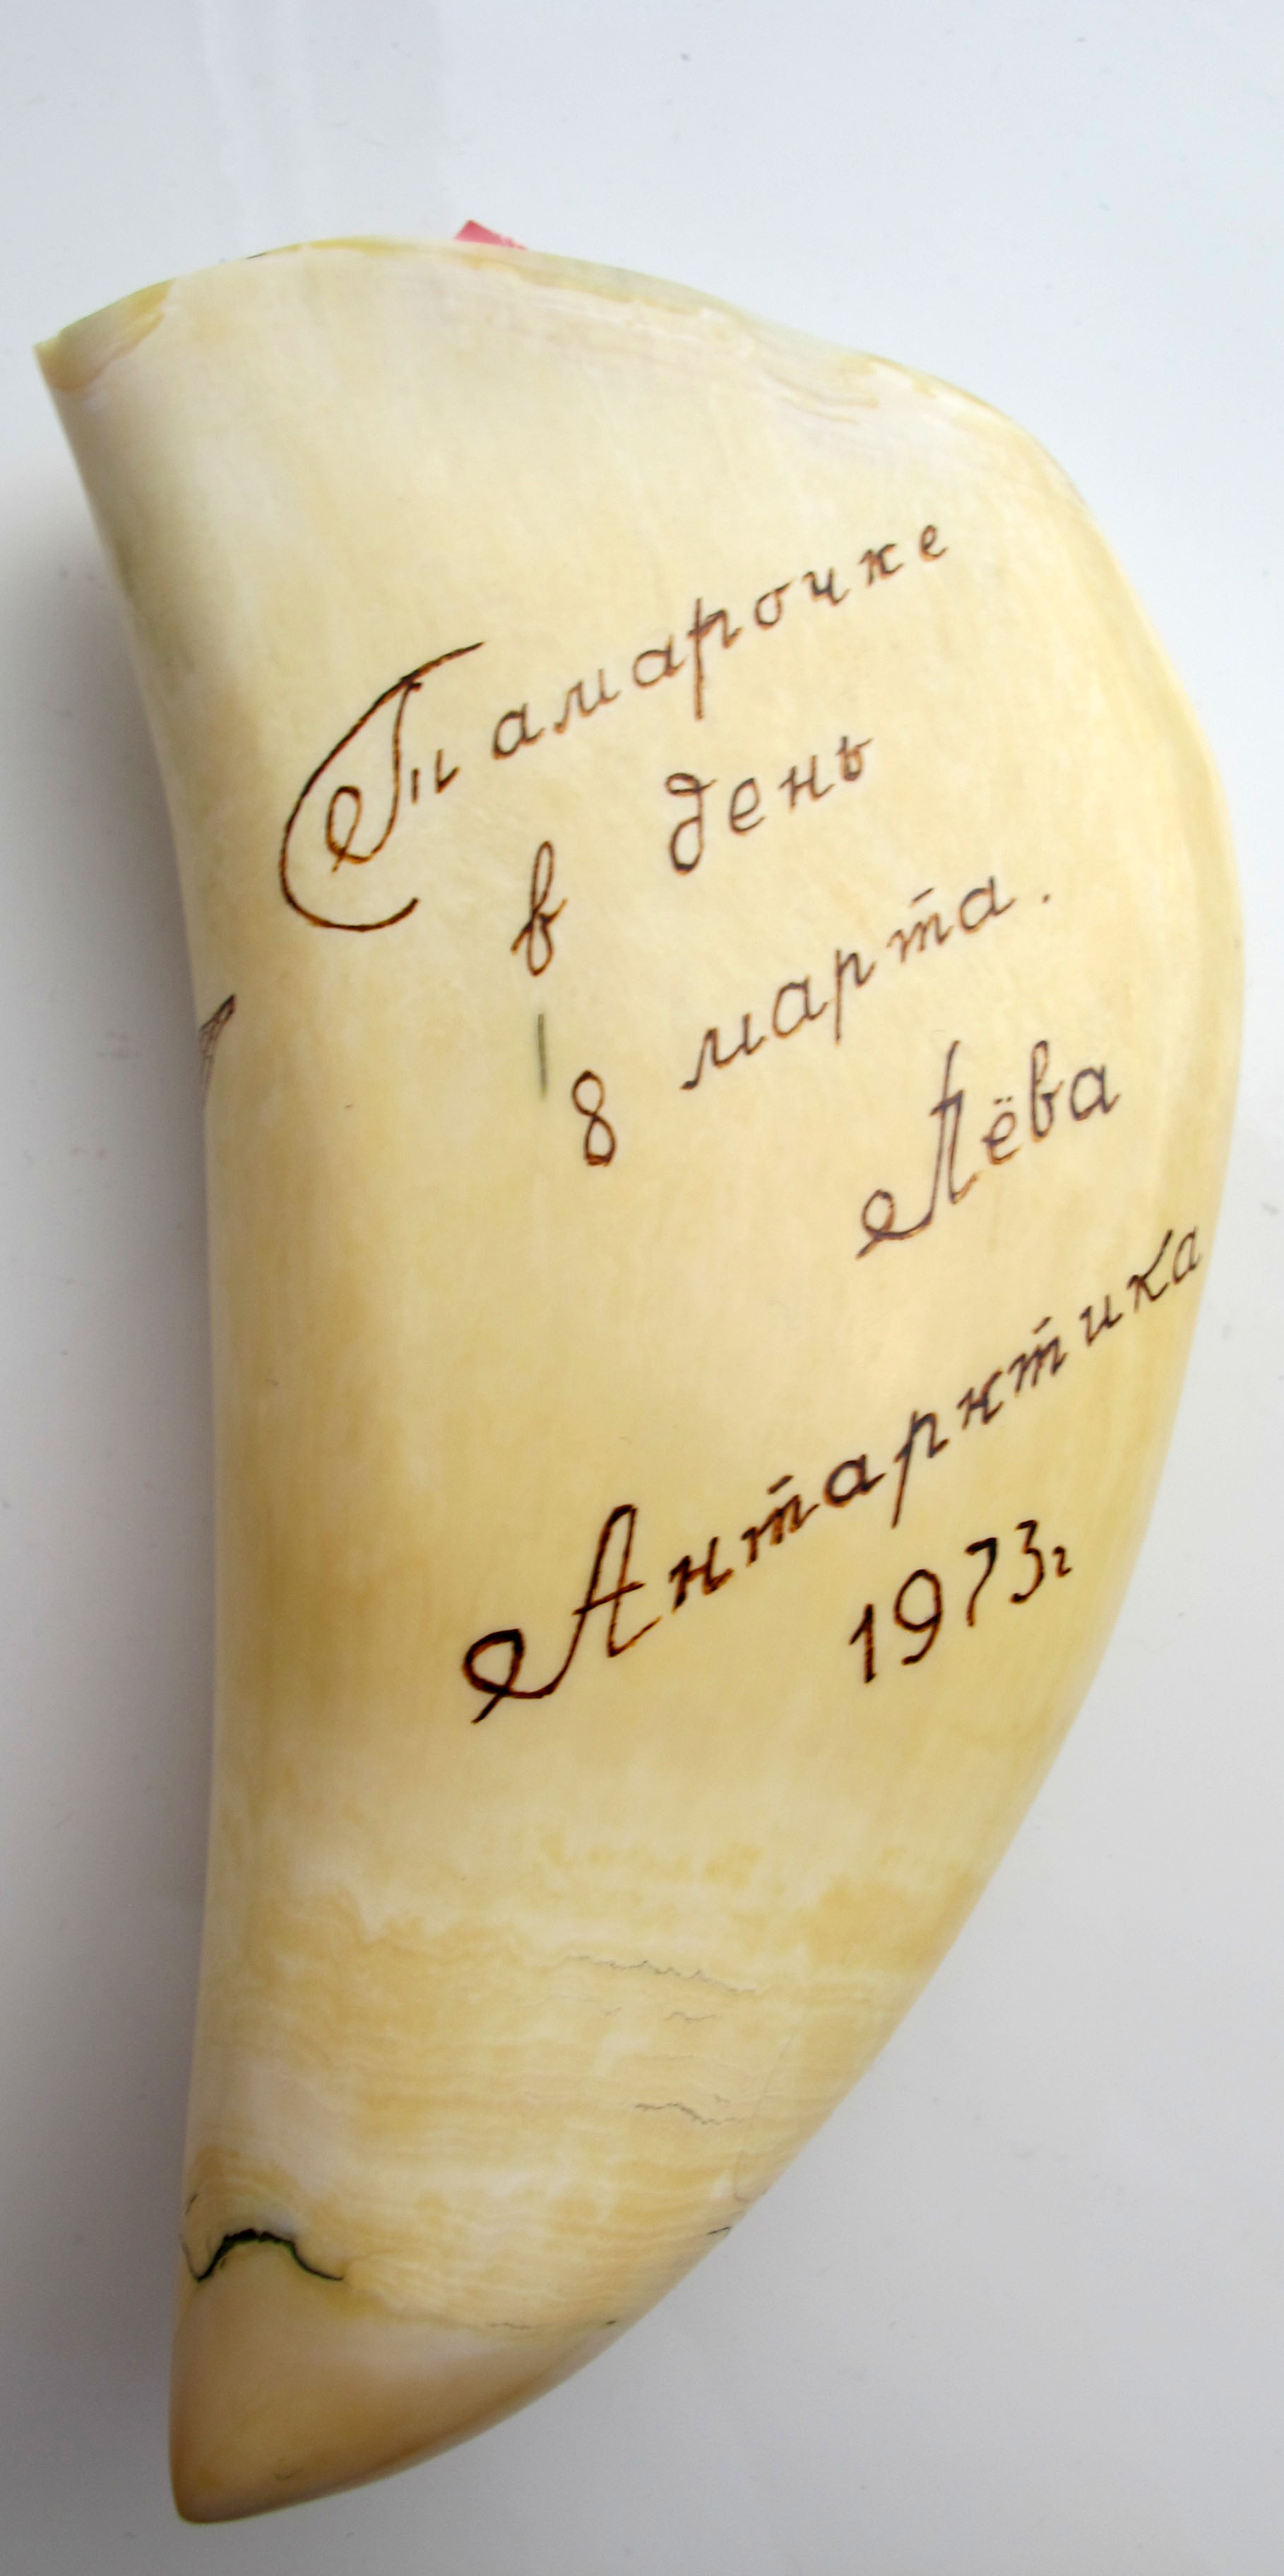 Тамарочке
в день
8 марта.
Лёва
Антарктика
1973г